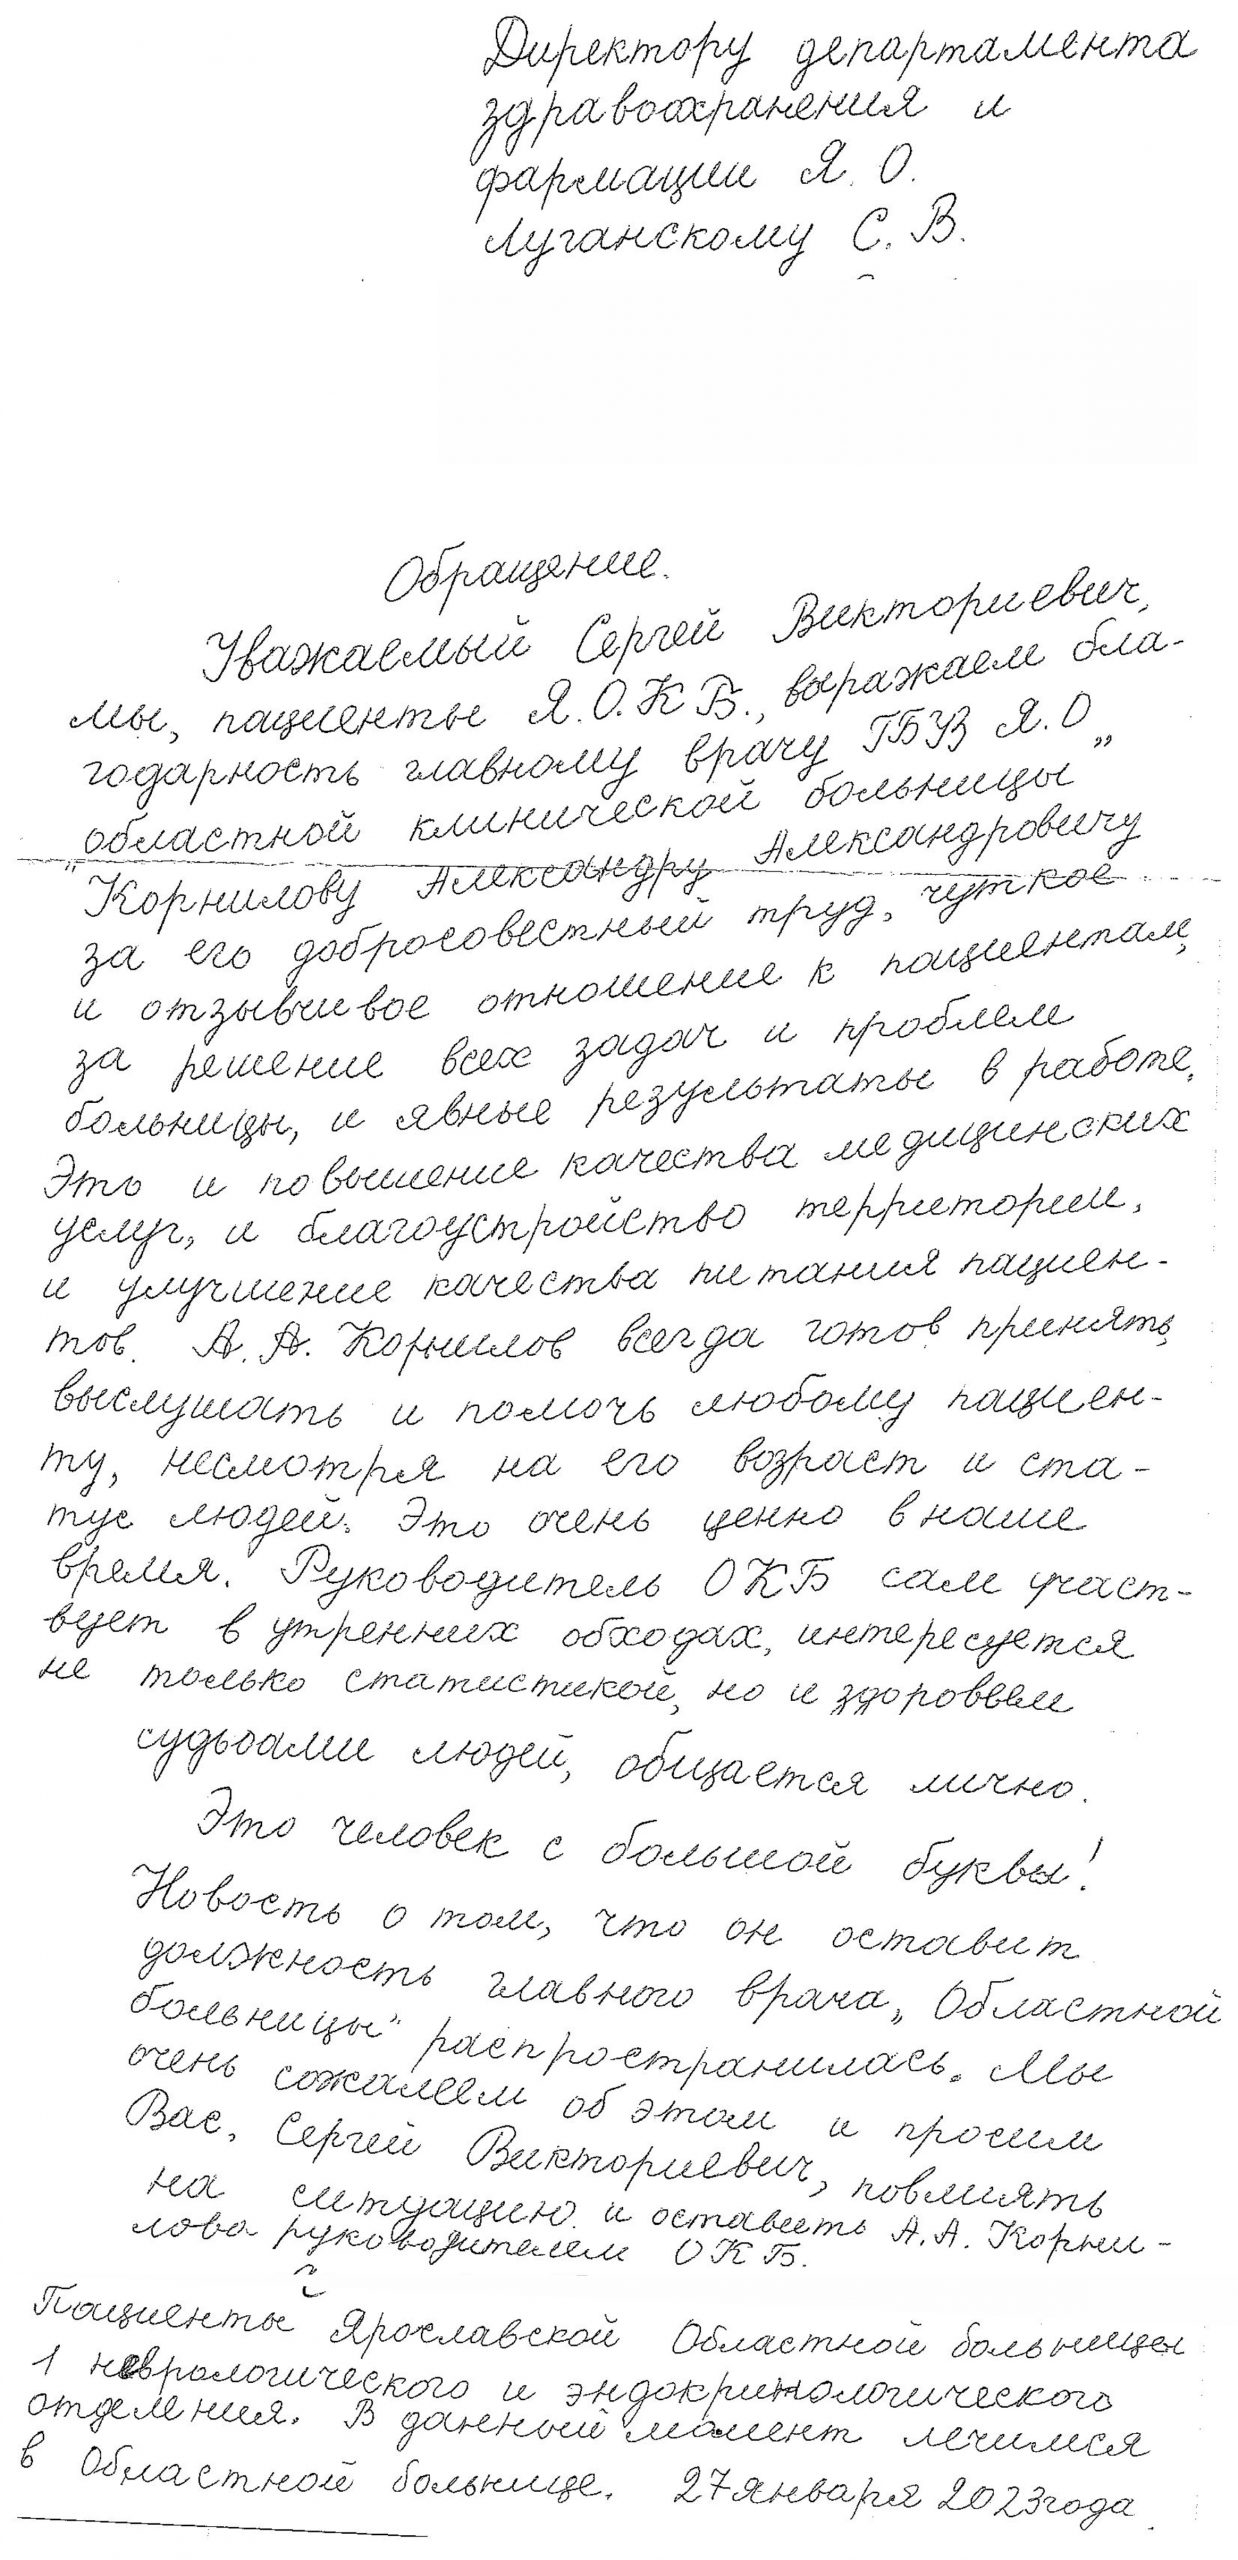 Директору департамента
здравоохранения и
фармации Я. О.
Луганскому С. В.
Обращение.
Уважаемый Сергей Викториевич,
мы, пациенты Я.О.К.Б., выражаем бла-
годарность главному врачу ГБУЗ Я.О
„областной клинической больницы”
Корнилову Александру Александровичу
за его добросовестный труд, чуткое
и отзывчивое отношение к пациентам,
за решение всех задач и проблем
больницы, и явные результаты в работе.
Это и повышение качества медицинских
услуг, и благоустройство территории,
и улучшение качества питания пациен-
тов. А. А. Корнилов всегда готов принять,
выслушать и помочь любому пациен-
ту, несмотря на его возраст и ста-
тус людей. Это очень ценно в наше
время. Руководитель ОКБ сам участ-
вует в утренних обходах, интересуется
не только статистикой, но и здоровьем
судьбами людей, общается лично.
Это человек с большой буквы!
Новость о том, что он оставит
должность главного врача „Областной
больницы” распространилась. Мы
очень сожалеем об этом и просим
Вас, Сергей Викториевич, повлиять
на ситуацию и оставить А.А. Корни-
лова руководителем ОКБ.
Пациенты Ярославской Областной больницы
1 неврологического и эндокринологического
отделения. В данный момент лечимся
в Областной больнице. 27 января 2023 года